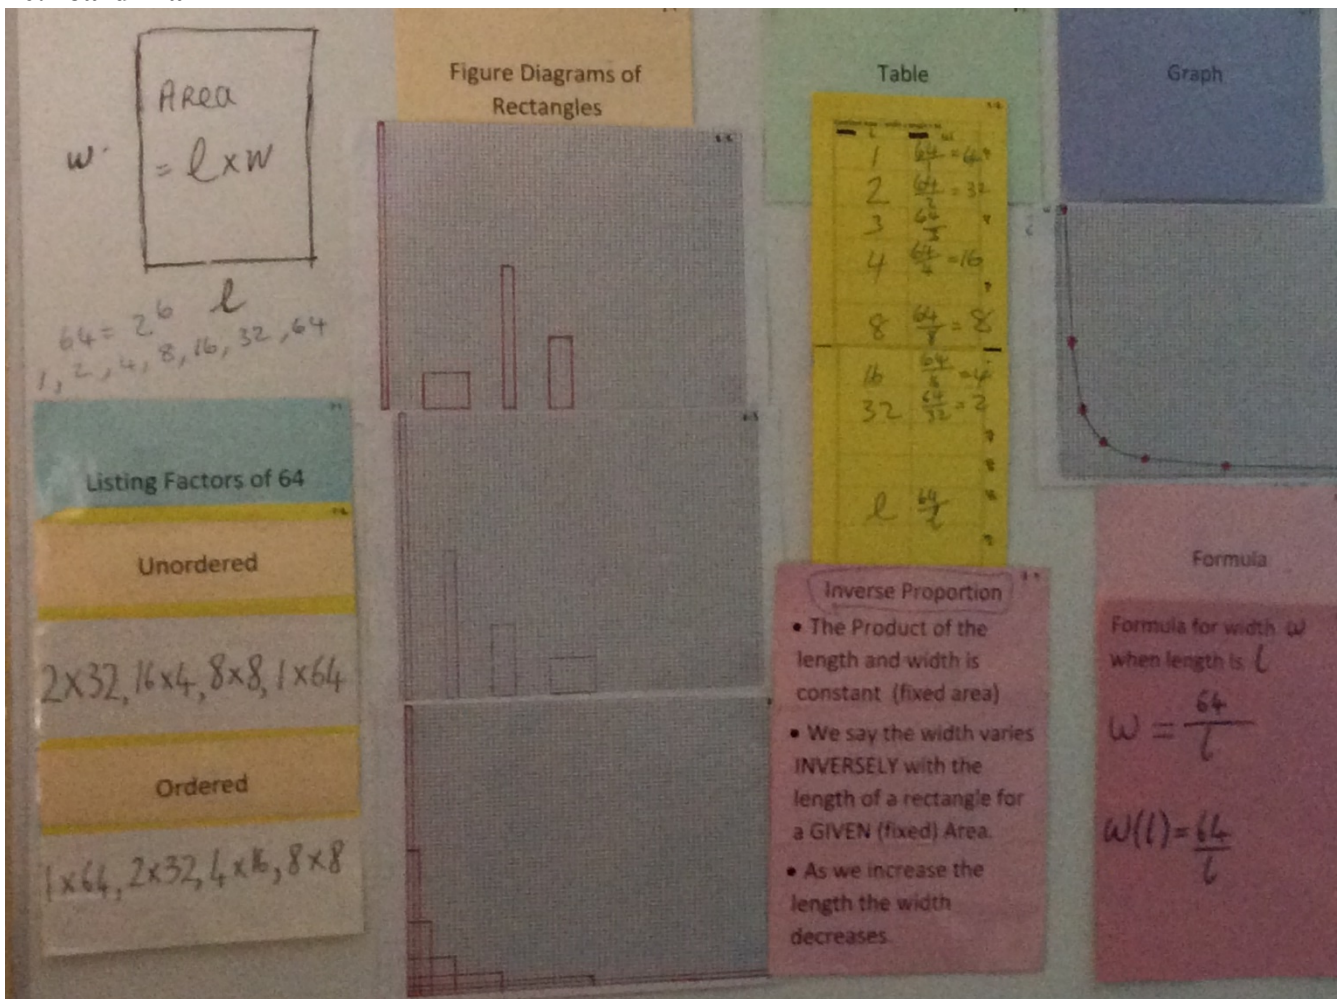 Area
= l x w
w
l
64 = 2^6
1, 2, 4, 8, 16, 32, 64
Listing Factors of 64
Unordered
2x32, 16x4, 8x8, 1x64
Ordered
1x64, 2x32, 4x16, 8x8
Figure Diagrams of
Rectangles
Table
1
2 64/2 = 32
3 64/3
4 64/4 = 16
8 64/8 = 8
16 = 4
32 64/32 = 2
l 64/l
Inverse Proportion
• The Product of the
length and width is
constant (fixed area)
• We say the width varies
INVERSELY with the
length of a rectangle for
a GIVEN (fixed) Area.
• As we increase the
length the width
decreases.
Graph
Formula
Formula for width w
when length is l
w = 64/l
w(l) = 64/l